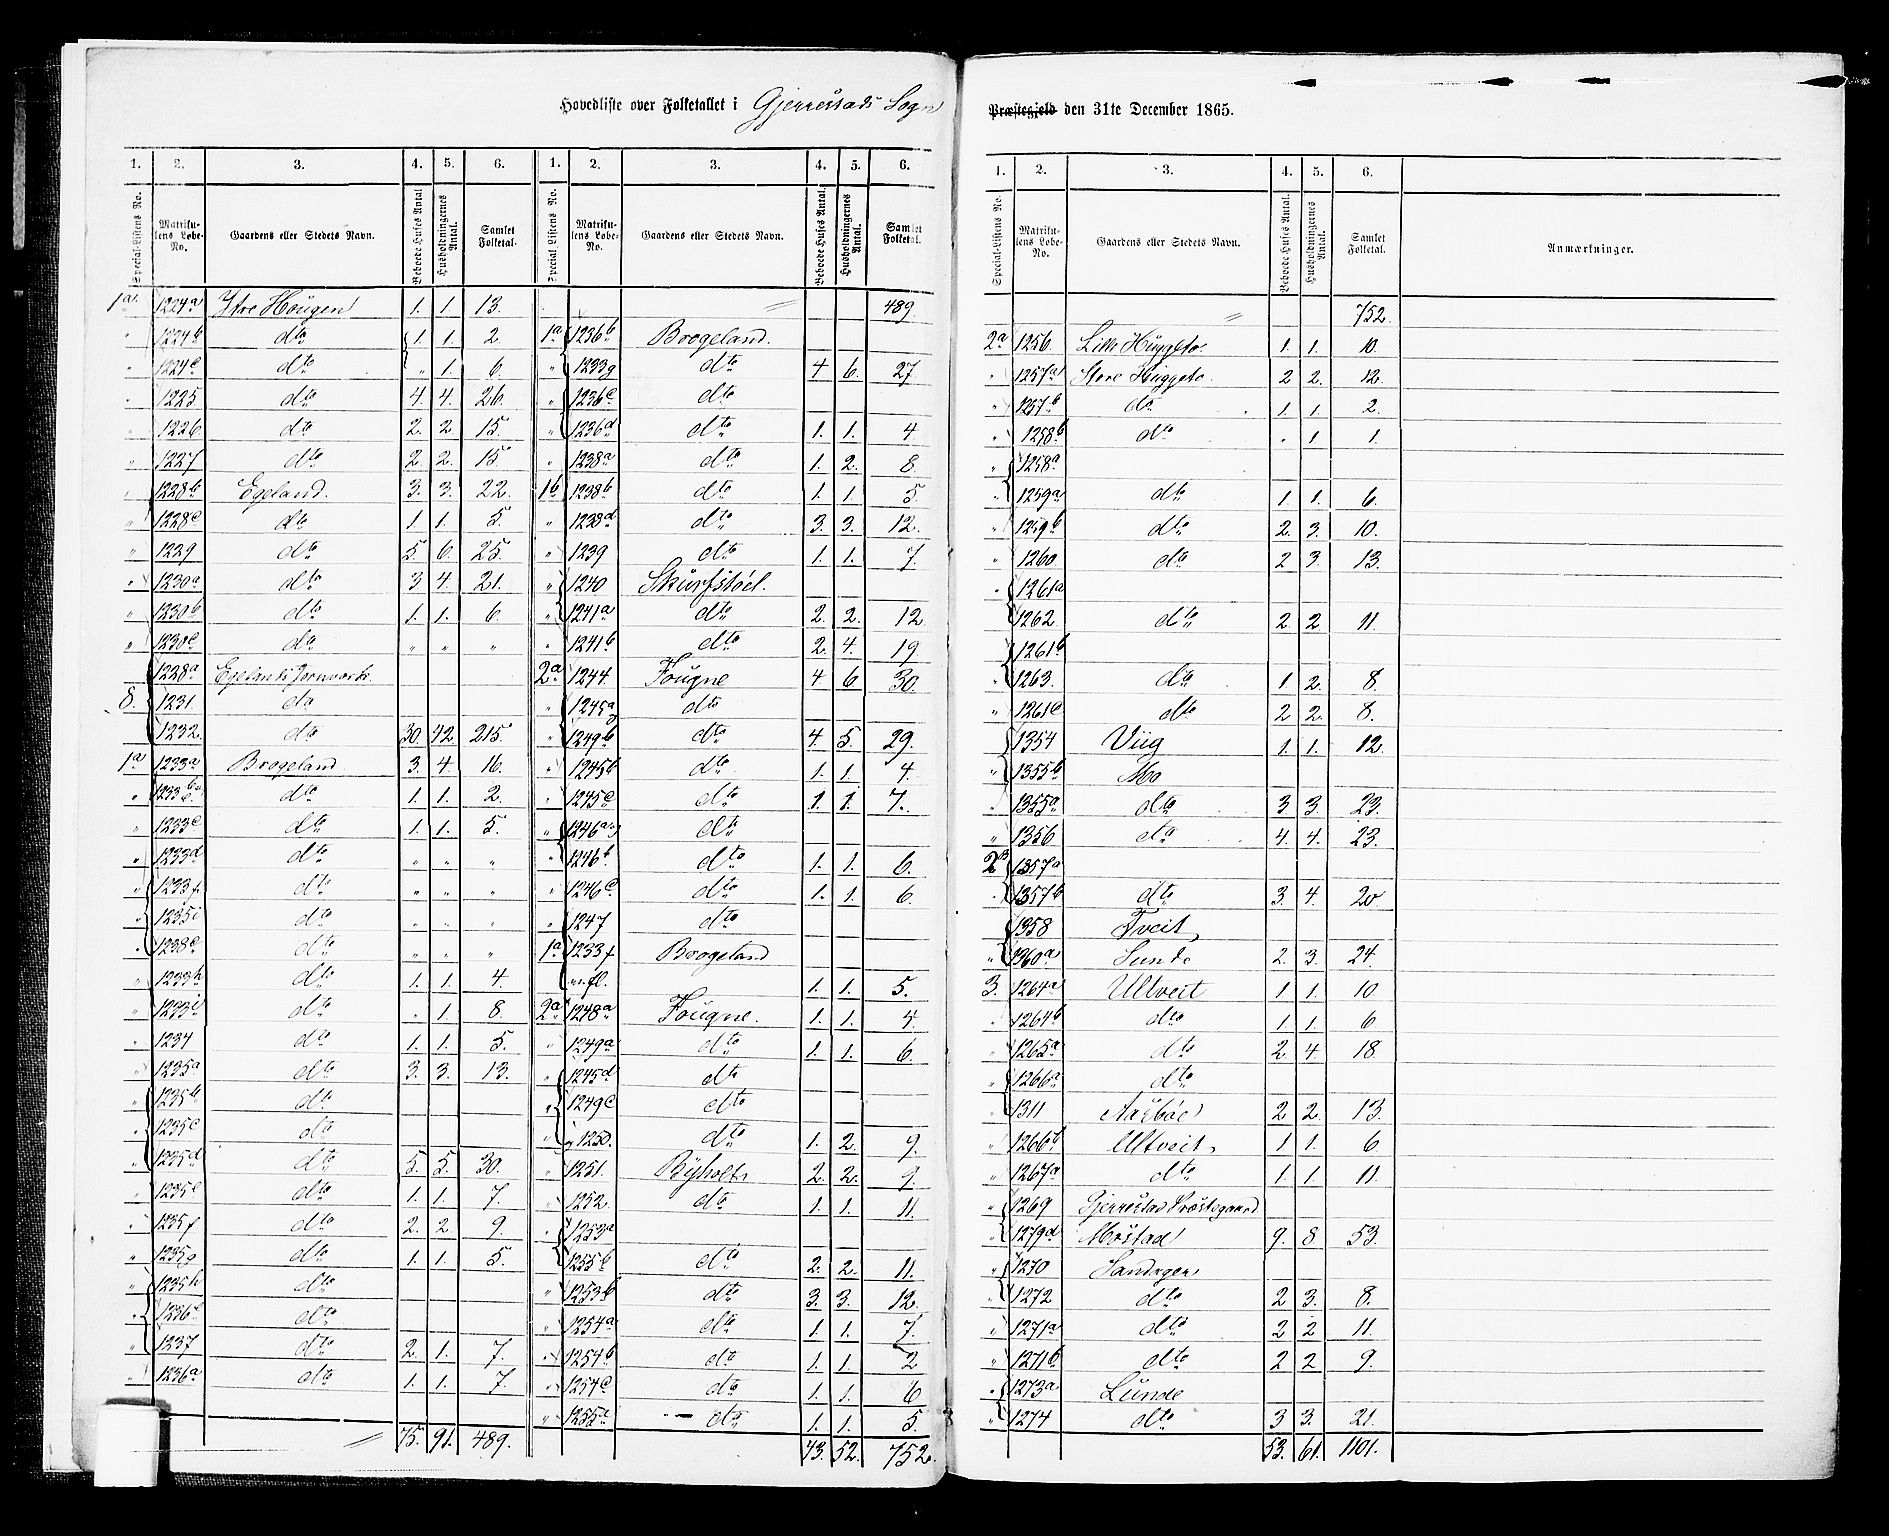 Hovedliste over Folketallet i Gjerrestads Sogn
Præstegjeld den 31te December 1865.
1. 2. 3. 4. 5. 6. 1. 2. 3. 4. 5. 6.
Special-Listens No. Matrikulens Løbe-No. Gaardens eller Stedets Navn. Beboede Huses Antal Husholdningernes Antal. Samlet Folketal.
1a 1224a Ytre Hougen 1. 1. 13.
" 1224b dto 1. 1. 2.
" 1224c dto " 1. 6.
" 1225 dto 4. 4. 26.
" 1226. dto 2. 2. 15.
" 1227 dto 2. 2. 15
" 1228b Egeland. 3. 3. 22.
" 1228c dto 1. 1. 5.
" 1229 dto 5. 6. 25.
" 1230a dto 3 4. 21.
" 1230b dto 1. 1. 6.
" 1230c do " " "
1228a Egelands Jernværk
8. 1231. do
1232. dto 30. 42 215.
1a 1233a Brogeland 3. 4. 16.
" 1233b dto 1. 1. 2.
" 1233c dto 1. 1. 5.
" 1233d dto " " "
" 1233f. dto " " "
" 1235i dto " " "
" 1238c dto " " "
" 1233h dto 1. 1. 4.
" 1233i dto " 1. 8.
" 1234 dto 1. 1. 5.
" 1235a dto 3. 3. 13.
" 1235b dto
" 1235c dto
" 1235d dto 5. 5. 30.
" 1235e dto 1. 1. 7.
" 1235f dto 2. 2. 9.
" 1235g dto 1. 1. 5.
" 1235h dto
" 1236 dto
" 1237 dto 2. 1. 7.
" 1236a dto 1. 1. 7.
75. 91. 489.
Special Listens No. Matrikulens Løbe-No. Gaardens eller Stedets Navn. Beboede Huses Antal. Husholdningernes Antal. Samlet Folketal.
489.
1a 1236b Brogeland.
" 1233g dto 4 6. 27
" 1236c dto
" 1236d dto 1. 1. 4
" 1238a dto 1. 2. 8.
1b 1238b dto 1. 1. 5
" 1238d dto 3. 3. 12.
" 1239 dto 1. 1. 7.
" 1240 Skurfstøel.
" 1241a dto 2. 2. 12
" 1241b dto 2. 4. 19
2a 1244 Fougne 4 6 30.
" 1245a dto
" 1249b dto 4. 5. 29.
" 1245b dto 1. 1. 4.
" 1245c dto 1. 1. 7.
" 1246a dto
" 1246b dto 1. 1. 6.
" 1246c dto 1. 1. 6.
" 1247 dto
1a 1233f Brogeland
m.fl. 1. 1. 5.
2a 1248a Fougne. 1. 1. 4.
" 1249a dto 1. 1. 6.
" 1245d dto
" 1249c dto
" 1250. dto 1. 2. 9.
" 1251. Byholt 2. 2. 9.
" 1252. dto 1. 1. 11.
" 1253a
1255c dto 2. 2. 11.
" 1253b dto 3. 3. 12.
" 1254a dto 1. 1. 7.
" 1254b dto 1. 1. 2
" 1254c dto 1. 1. 6
" 1255a dto 1. 1. 5.
43. 52. 752.
1. 2. 3. 4. 5. 6.
Special-Listens No. Matrikulens Løbe-No. Gaardens eller Stedets Navn. Beboede Huses Antal. Husholdningernes Antal. Samlet Folketal. Anmærkninger.
752.
2a 1256. Lille Huggeto. 1. 1. 10.
" 1257a Store Huggeto. 2 2. 12.
" 1257b dto 1. 1. 2.
" 1258b dto " 1 1.
" 1258a
" 1259a dto 1 1. 6.
" 1259b dto 2. 3. 10.
" 1260 do 2 3. 13.
" 1261a
1262. dto 2. 2 11.
1261b
" 1263. do 1 2. 8.
" 1261c dto 2 2. 8.
1354 Viig 1. 1. 12.
" 1355b Mo
" 1355a dto 3 3. 23.
" 1356 dto 4. 4. 23.
2b 1357a
" 1357b dto 3. 4. 20.
1358 Tveit
" 1360a Sunde 2. 3. 24.
3. 1264a Ultveit 1 1. 10
" 1264b dto 1 1. 6
" 1265a dto 2. 4. 18
" 1266a dto
" 1311 Aasbøe 2 2. 13.
" 1266b Ultveit 1 1. 6
" 1267a dto 1 1. 11.
" 1269 Gjerrestad Præstegaard
" 1279d Møstad 9. 8. 53.
" 1270 Sandagen
" 1272 dto 2 3. 8.
" 1271a dto 2 2 11.
" 1271b dto 2 2 9.
" 1273a Lunde
" 1274 dto 3 3. 21.
53. 61. 1101.